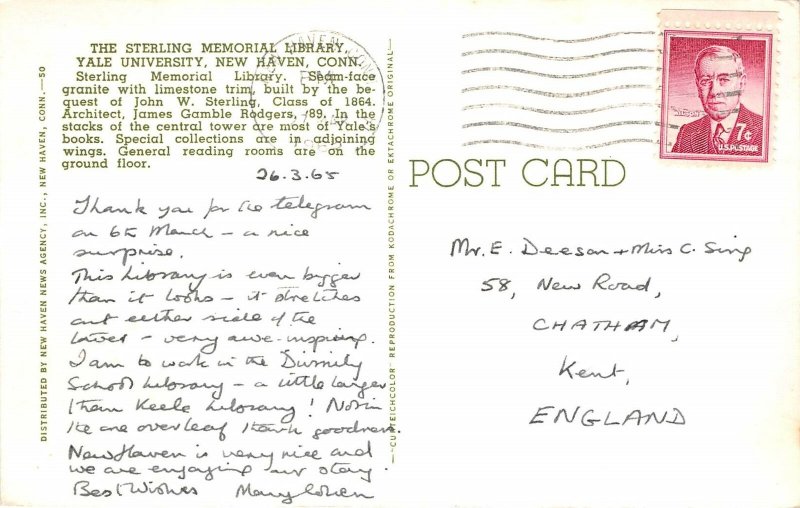 THE STERLING MEMORIAL LIBRARY,
YALE UNIVERSITY, NEW HAVEN, CONN.
Sterling Memorial Library. Seam-face
granite with limestone trim, built by the be-
quest of John W. Sterling, Class of 1864.
Architect, James Gamble Rodgers, '89. In the
stacks of the central tower are most of Yale's
books. Special collections are in adjoining
wings. General reading rooms are on the
ground floor.
26.3.65
Thank you for the telegram
on 6th March - a nice
surprise.
This Library is even bigger
than it looks - it stretches
out either side of the
tower - very awe-inspiring.
I am to work in the Divinity
School Library - a little larger
than Keele Library! Not in
the one overleaf thank goodness.
New Haven is very nice and
we are enjoying our stay.
Best Wishes Mary
DISTRIBUTED BY NEW HAVEN NEWS AGENCY, INC., NEW HAVEN, CONN.-50
"CURTEICHCOLOR" REPRODUCTION FROM KODACHROME OR EKTACHROME ORIGINAL
POST CARD
7¢
U.S. POSTAGE
Mr. E. Deeson + Miss C. Sing
58, New Road,
CHATHAM,
Kent,
ENGLAND